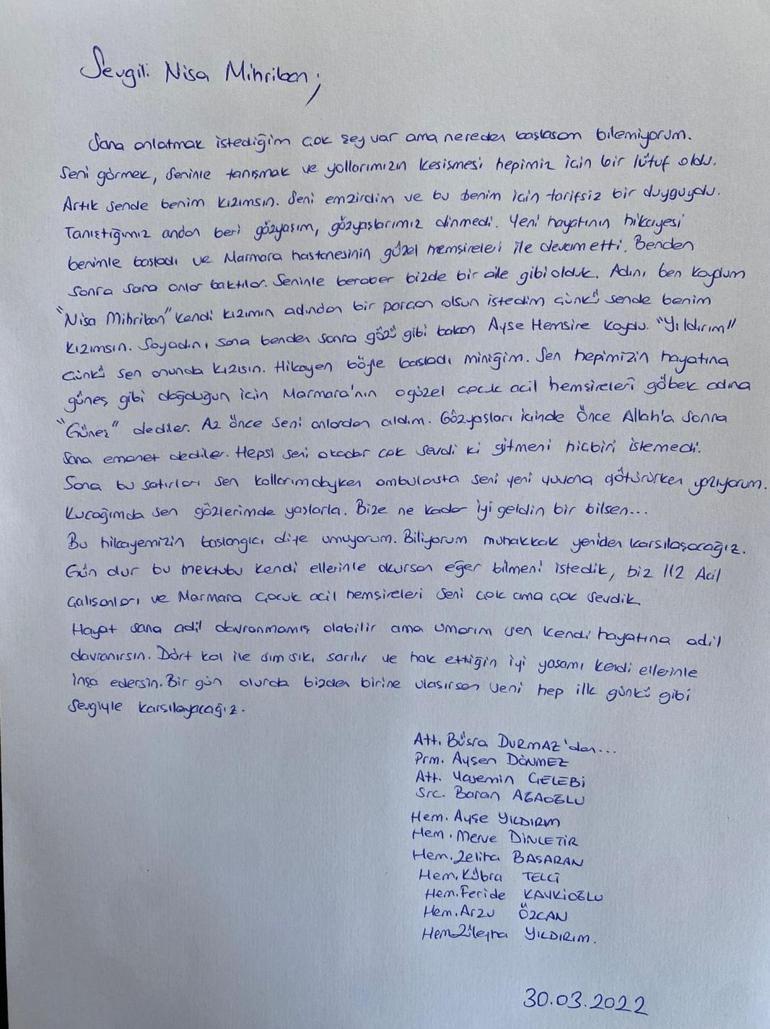 Sevgili Nisa Mihriban;
Sana anlatmak istediğim çok şey var ama nereden başlasam bilemiyorum.
Seni görmek, seninle tanışmak ve yollarımızın kesişmesi hepimiz için bir lütuf oldu.
Artık sende benim kızımsın. Seni emzirdim ve bu benim için tarifsiz bir duyguydu.
Tanıştığımız andan beri gözyaşım, gözyaşlarımız dinmedi. Yeni hayatının hikayesi
benimle başladı ve Marmara hastanesinin güzel hemşireleri ile devam etti. Benden
sonra sana onlar baktılar. Seninle beraber bizde bir aile gibi olduk. Adını ben koydum
"Nisa Mihriban" kendi kızımın adından bir parçan olsun istedim çünkü sende benim
kızımsın. Soyadını, sana benden sonra gözü gibi bakan Ayşe Hemşire koydu. "Yıldırım"
çünkü sen onunda kızısın. Hikayen böyle başladı miniğim. Sen hepimizin hayatına
güneş gibi doğduğun için Marmara'nın o güzel çocuk acil hemşireleri göbek adına
"Güneş" dediler. Az önce seni onlardan aldım. Gözyaşları içinde Önce Allah'a sonra
sana emanet dediler. Hepsi seni okadar çok sevdi ki gitmeni hiçbiri istemedi.
Sana bu satırları sen kollarımdayken ambulansta seni yeni yuvana götürürken yazıyorum.
Kucağımda sen gözlerimde yaşlarla. Bize ne kadar iyi geldin bir bilsen...
Bu hikayemizin başlangıcı diye umuyorum. Biliyorum muhakkak yeniden karşılaşacağız.
Gün olur bu mektubu kendi ellerinle okursan eğer bilmeni istedik, biz 112 Acil
Çalışanları ve Marmara Çocuk acil hemşireleri seni çok ama çok sevdik.
Hayat sana adil davranmamış olabilir ama umarım sen kendi hayatına adil
davranırsın. Dört kol ile sımsıkı sarılır ve hak ettiğin iyi yaşamı kendi ellerinle
inşa edersin. Bir gün olurda bizden birine ulaşırsan seni hep ilk günkü gibi
Sevgiyle karşılayacağız.
Att. Büşra DURMAZ'dan...
Prm. Ayşen DÖNMEZ
Att. Yasemin ÇELEBİ
Src. Baran AĞAOĞLU
Hem. Ayşe YILDIRIM
Hem. Merve DİNLETİR
Hem. Zeliha BAŞARAN
Hem. Kübra TELCİ
Hem. Feride KAVKIOĞLU
Hem. Arzu ÖZCAN
Hem. Züleyha YILDIRIM.
30.03.2022